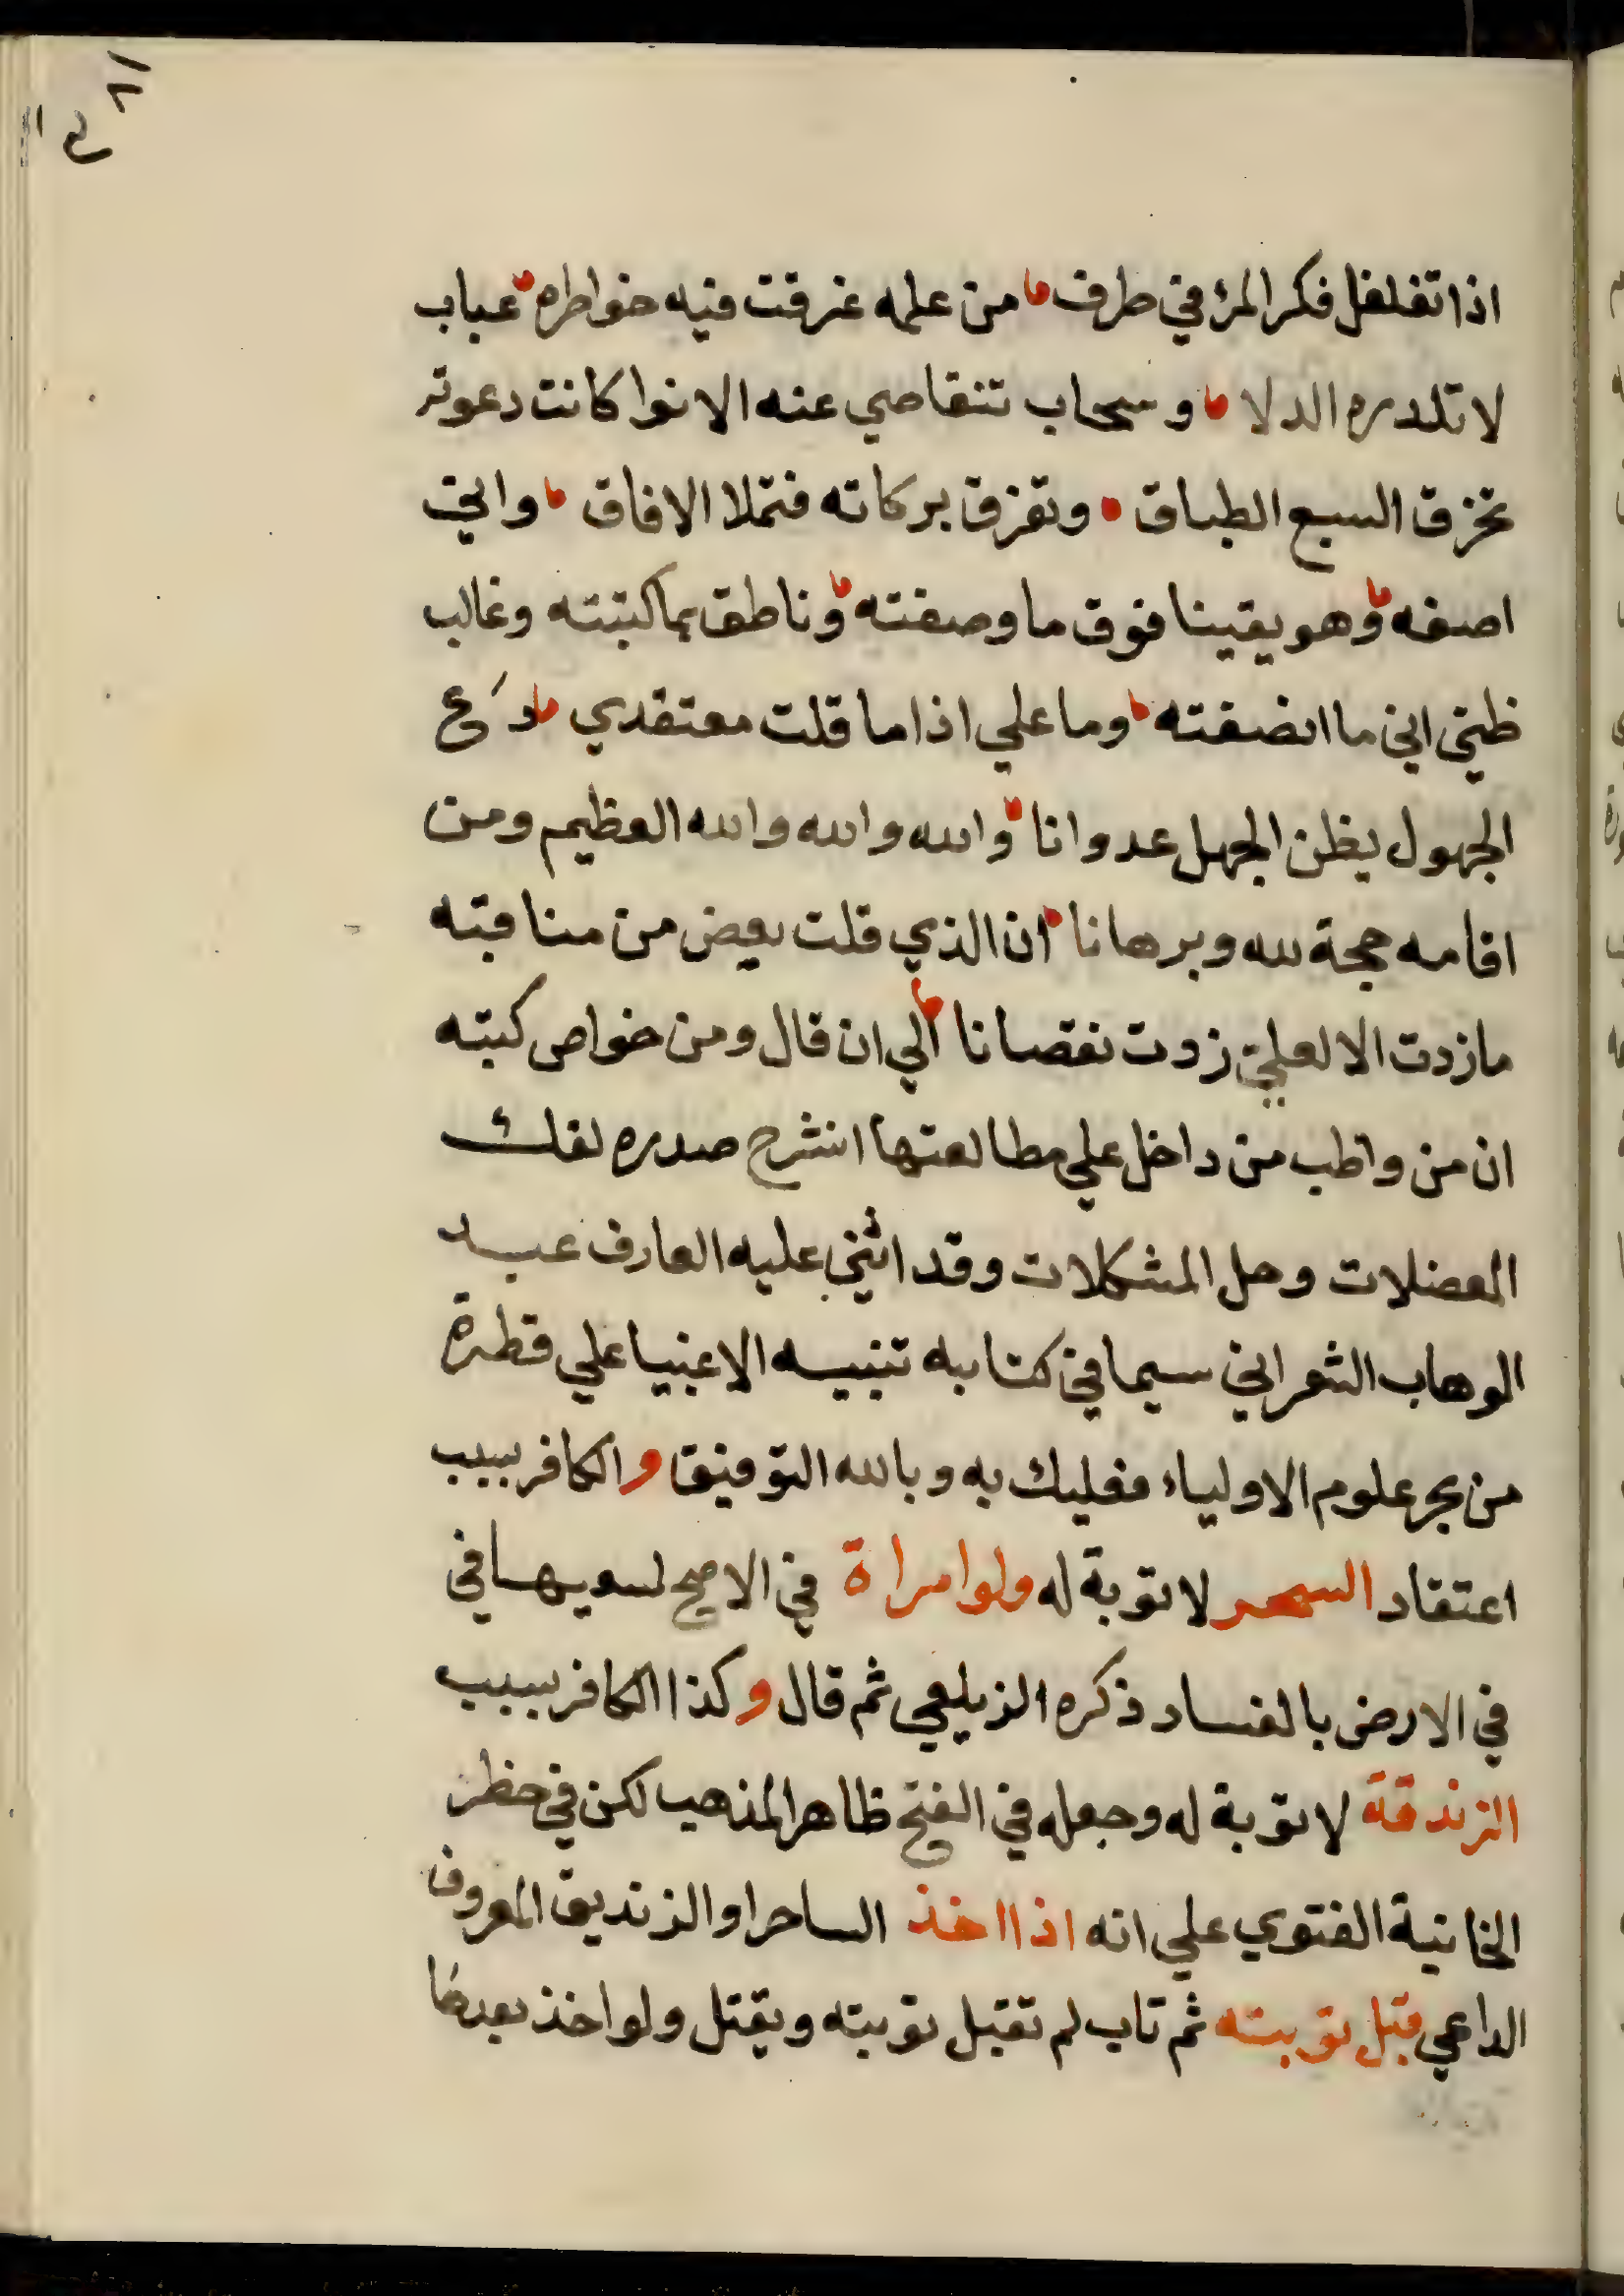 اذا تغلغل فكر المرء في طرف من علمه غرقت فيه خواطره عباب
لا تكدره الدلا وسحاب تتقاصي عنه الانوا كانت دعوته
تخرق السبع الطباق وتفرق بركاته فتملا الافاق واني
اصفه وهو يقينا فوق ما وصفته وناطق بما كتبته وغالب
ظني اني ما انصفته وما علي اذا ما قلت معتقدي دع
الجهول يظن الجهل عدوانا والله والله والله العظيم ومن
اقامه حجة لله وبرهانا ان الذي قلت بعض من مناقبه
ما زدت الا لعلي زدت نقصانا الي ان قال ومن خواص كتبه
ان من واظب من داخل علي مطالعتها انشرح صدره لفك
المعضلات وحل المشكلات وقد اثني عليه العارف عبد
الوهاب الشعراني سيما في كتابه تنبيه الاغبيا علي قطرة
من بحر علوم الاولياء فعليك به وبالله التوفيق والكافر بسبب
اعتقاد السحر لا توبة له ولو امراة في الاصح لسعيها في
في الارض بالفساد ذكره الزيلعي ثم قال وكذا الكافر بسبب
الزندقة لا توبة له وجعله في الفتح ظاهر المذهب لكن في حظر
الخانية الفتوي علي انه اذا اخذ الساحر او الزنديق المعروف
الداعي قبل توبته ثم تاب لم تقبل توبته ويقتل ولو اخذ بعدها